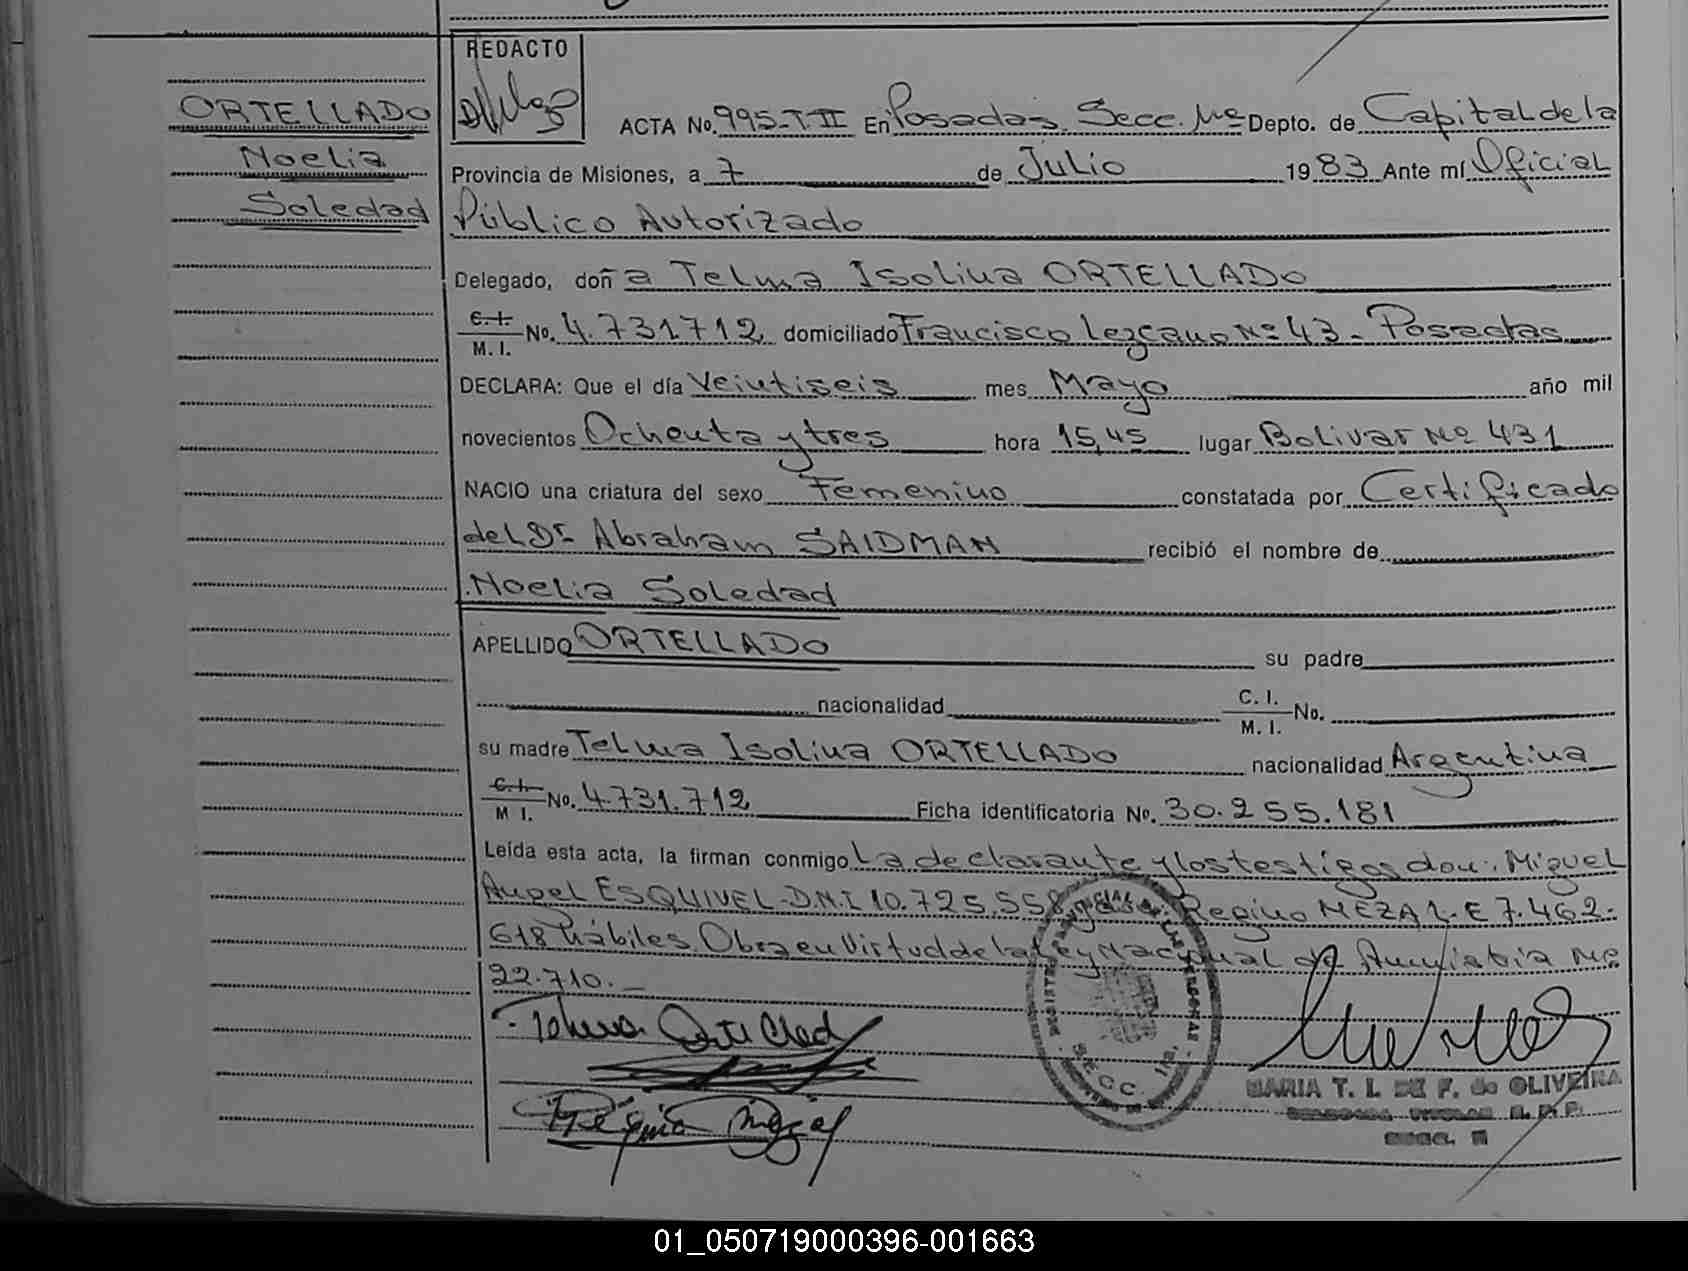 REDACTO
ORTELLADO
Noelia
Soledad
ACTA No. 995-T-II En Posadas, Secc. Depto. de Capital de la
Provincia de Misiones, a 7 de Julio 1983 Ante mí Oficial
Público Autorizado
Delegado, doña Telma Isolina ORTELLADO
C. I.
M. I. No. 4.731.712, domiciliado Francisco Lezcano Nº 43 - Posadas
DECLARA: Que el día Veintiseis mes Mayo año mil
novecientos Ochenta y tres hora 15,45 lugar Bolivar Nº 431
NACIO una criatura del sexo Femenino constatada por Certificado
del Dr. Abraham SAIDMAN recibió el nombre de
Noelia Soledad
APELLIDO ORTELLADO su padre
nacionalidad C. I.
M. I. No.
su madre Telma Isolina ORTELLADO nacionalidad Argentina
C. I.
M I. No. 4.731.712 Ficha identificatoria No. 30.255.181
Leída esta acta, la firman conmigo La declarante y los testigos don: Miguel
Angel ESQUIVEL-D.N.I 10.725.558 y Regino MEZA L.E 7.462.
618 hábiles. Obra en Virtud de la Ley Nacional de Amnistia Nº
22.710.-
Telma Ortellad
MARIA T. I. DE F. de OLIVEIRA
01_050719000396-001663